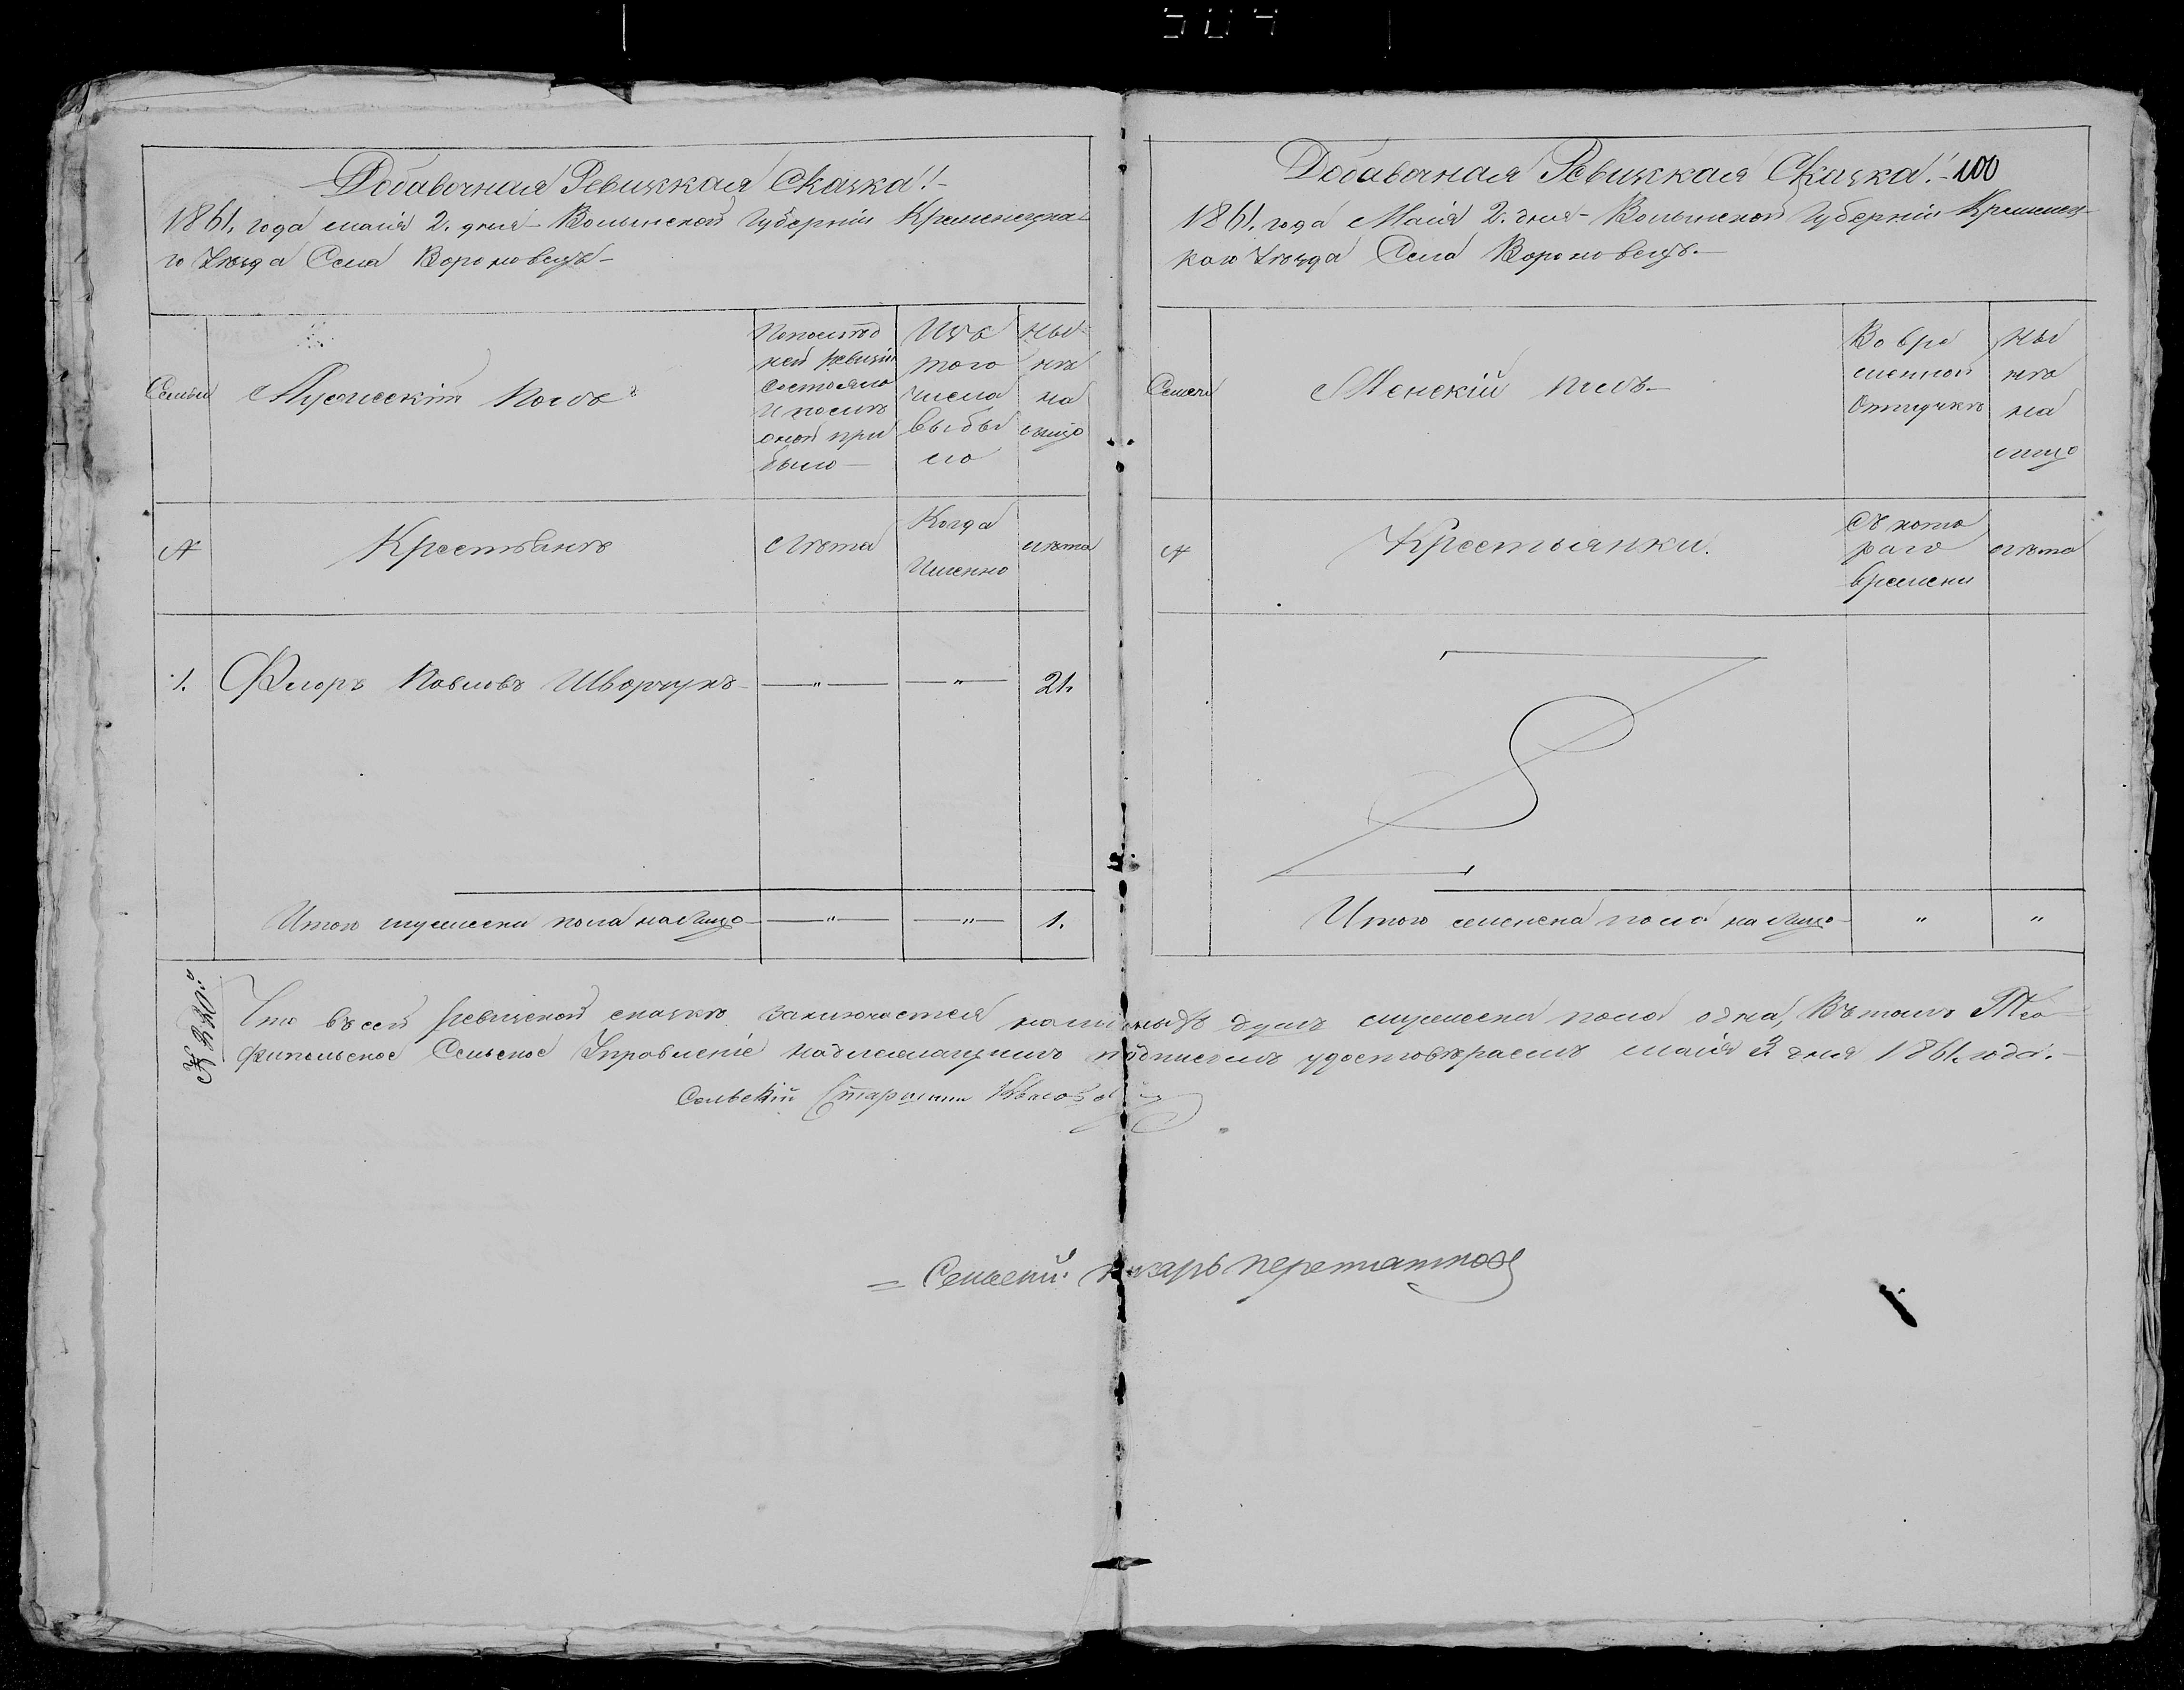 Добавочная Ревизкая Сказка!-
1861. года маія 2. дня - Волынской Губерніи Кременецка-
го Уезда Села Вороновецъ-
Семьи
Мужескій Полъ
По послед
ней ревизіи
состояло
и после
оной при
было
Изъ
того
числа
выбы
ло
Ны-
не
на
лицо
№
Крестьане
Лета
Когда
Именно
лета
1.
Флоръ Павловъ Шворчукъ
— " —
— " —
21.
Итого мужеска пола на лицо
— " —
— " —
1.
Добавочная Ревизкая Сказка!- 100
1861. года Маія 2. дня - Волынской Губерніи Кременец-
каго Уезда Села Вороновецъ.-
Семьи
Женскій полъ-
Во вре
менной
Отлучке
Ны
не
на
лицо
№
Крестьянки.
Съ кото
раго
времени
лета
Итого женска пола на лицо
"
"
Что въ сей ревизской сказке заключается душъ мужеска пола одна, Въ томъ Тео-
фипольское Сельское Управленіе надлежащимъ подписомъ удостоверяемъ маія 3. дня 1861. года.-
Сельскій Старшина
= Сельскій писарь
504